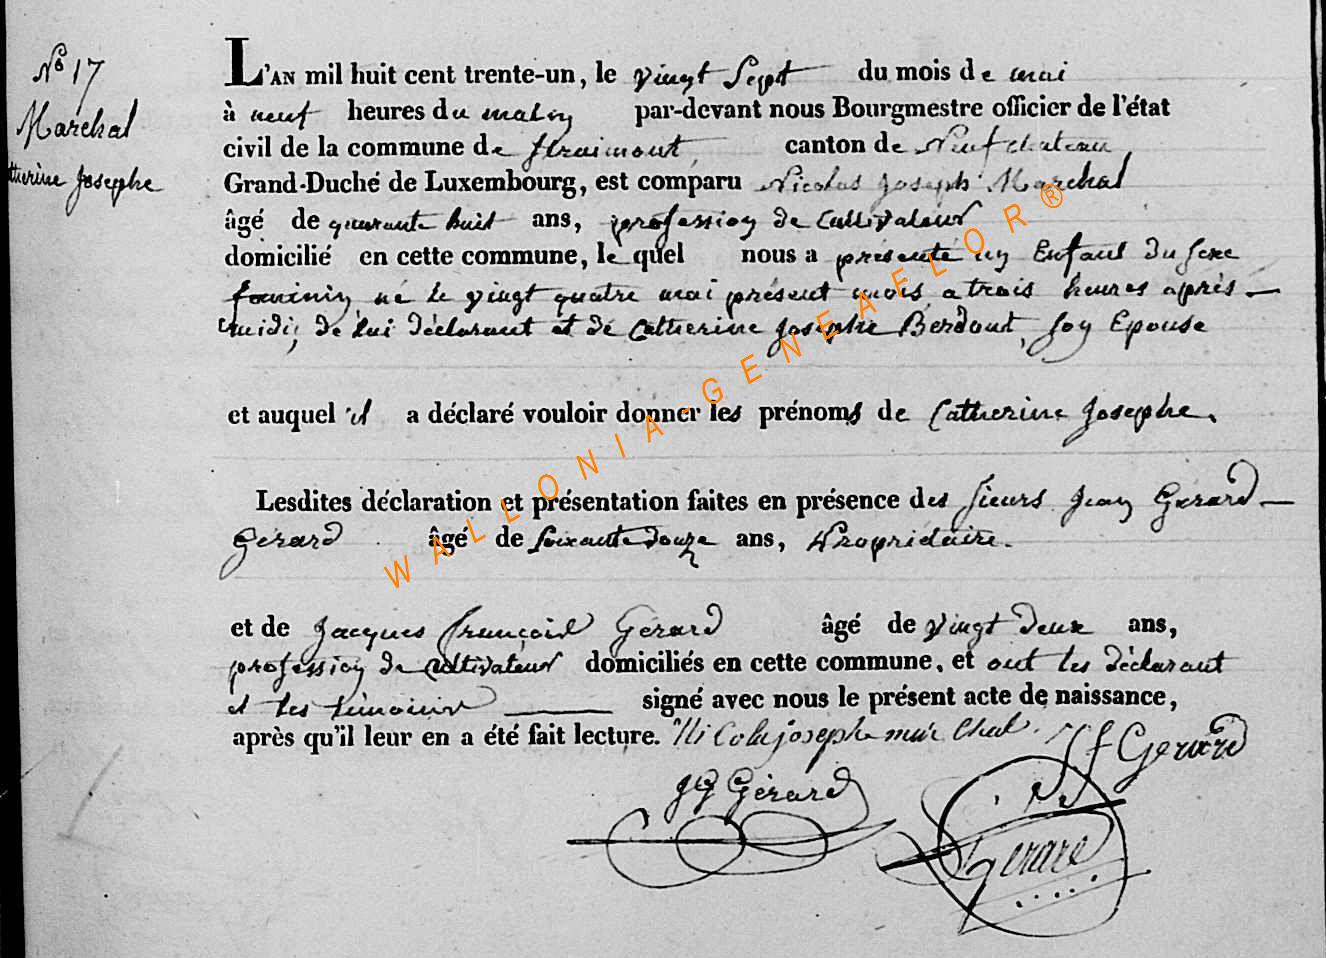 No 17
Maréchal
Catherine Josephe
L'AN mil huit cent trente-un, le vingt Sept du mois de mai
à neuf heures du matin par-devant nous Bourgmestre officier de l'état
civil de la commune de Straimont canton de Neufchateau
Grand-Duché de Luxembourg, est comparu Nicolas Joseph Maréchal
âgé de quarante huit ans, profession de Cultivateur
domicilié en cette commune, le quel nous a présenté un Enfant du sexe
féminin né le vingt quatre mai présent mois, a trois heures après-
midi, de lui déclarant et de Catherine Josephe Berdout, son Epouse
et auquel il a déclaré vouloir donner les prénoms de Catherine Josephe.
Lesdites déclaration et présentation faites en présence des sieurs Jean Gérard-
Gérard âgé de soixante douze ans, Propriétaire.
et de Jacques françois Gérard âgé de vingt deux ans,
profession de Cultivateur domiciliés en cette commune, et ont les déclarant
et les témoins signé avec nous le présent acte de naissance,
après qu'il leur en a été fait lecture. Nicola joseph marechal. JfGerard
JG Gérard
Gerard
WALLONIA-GENEAFLOR®